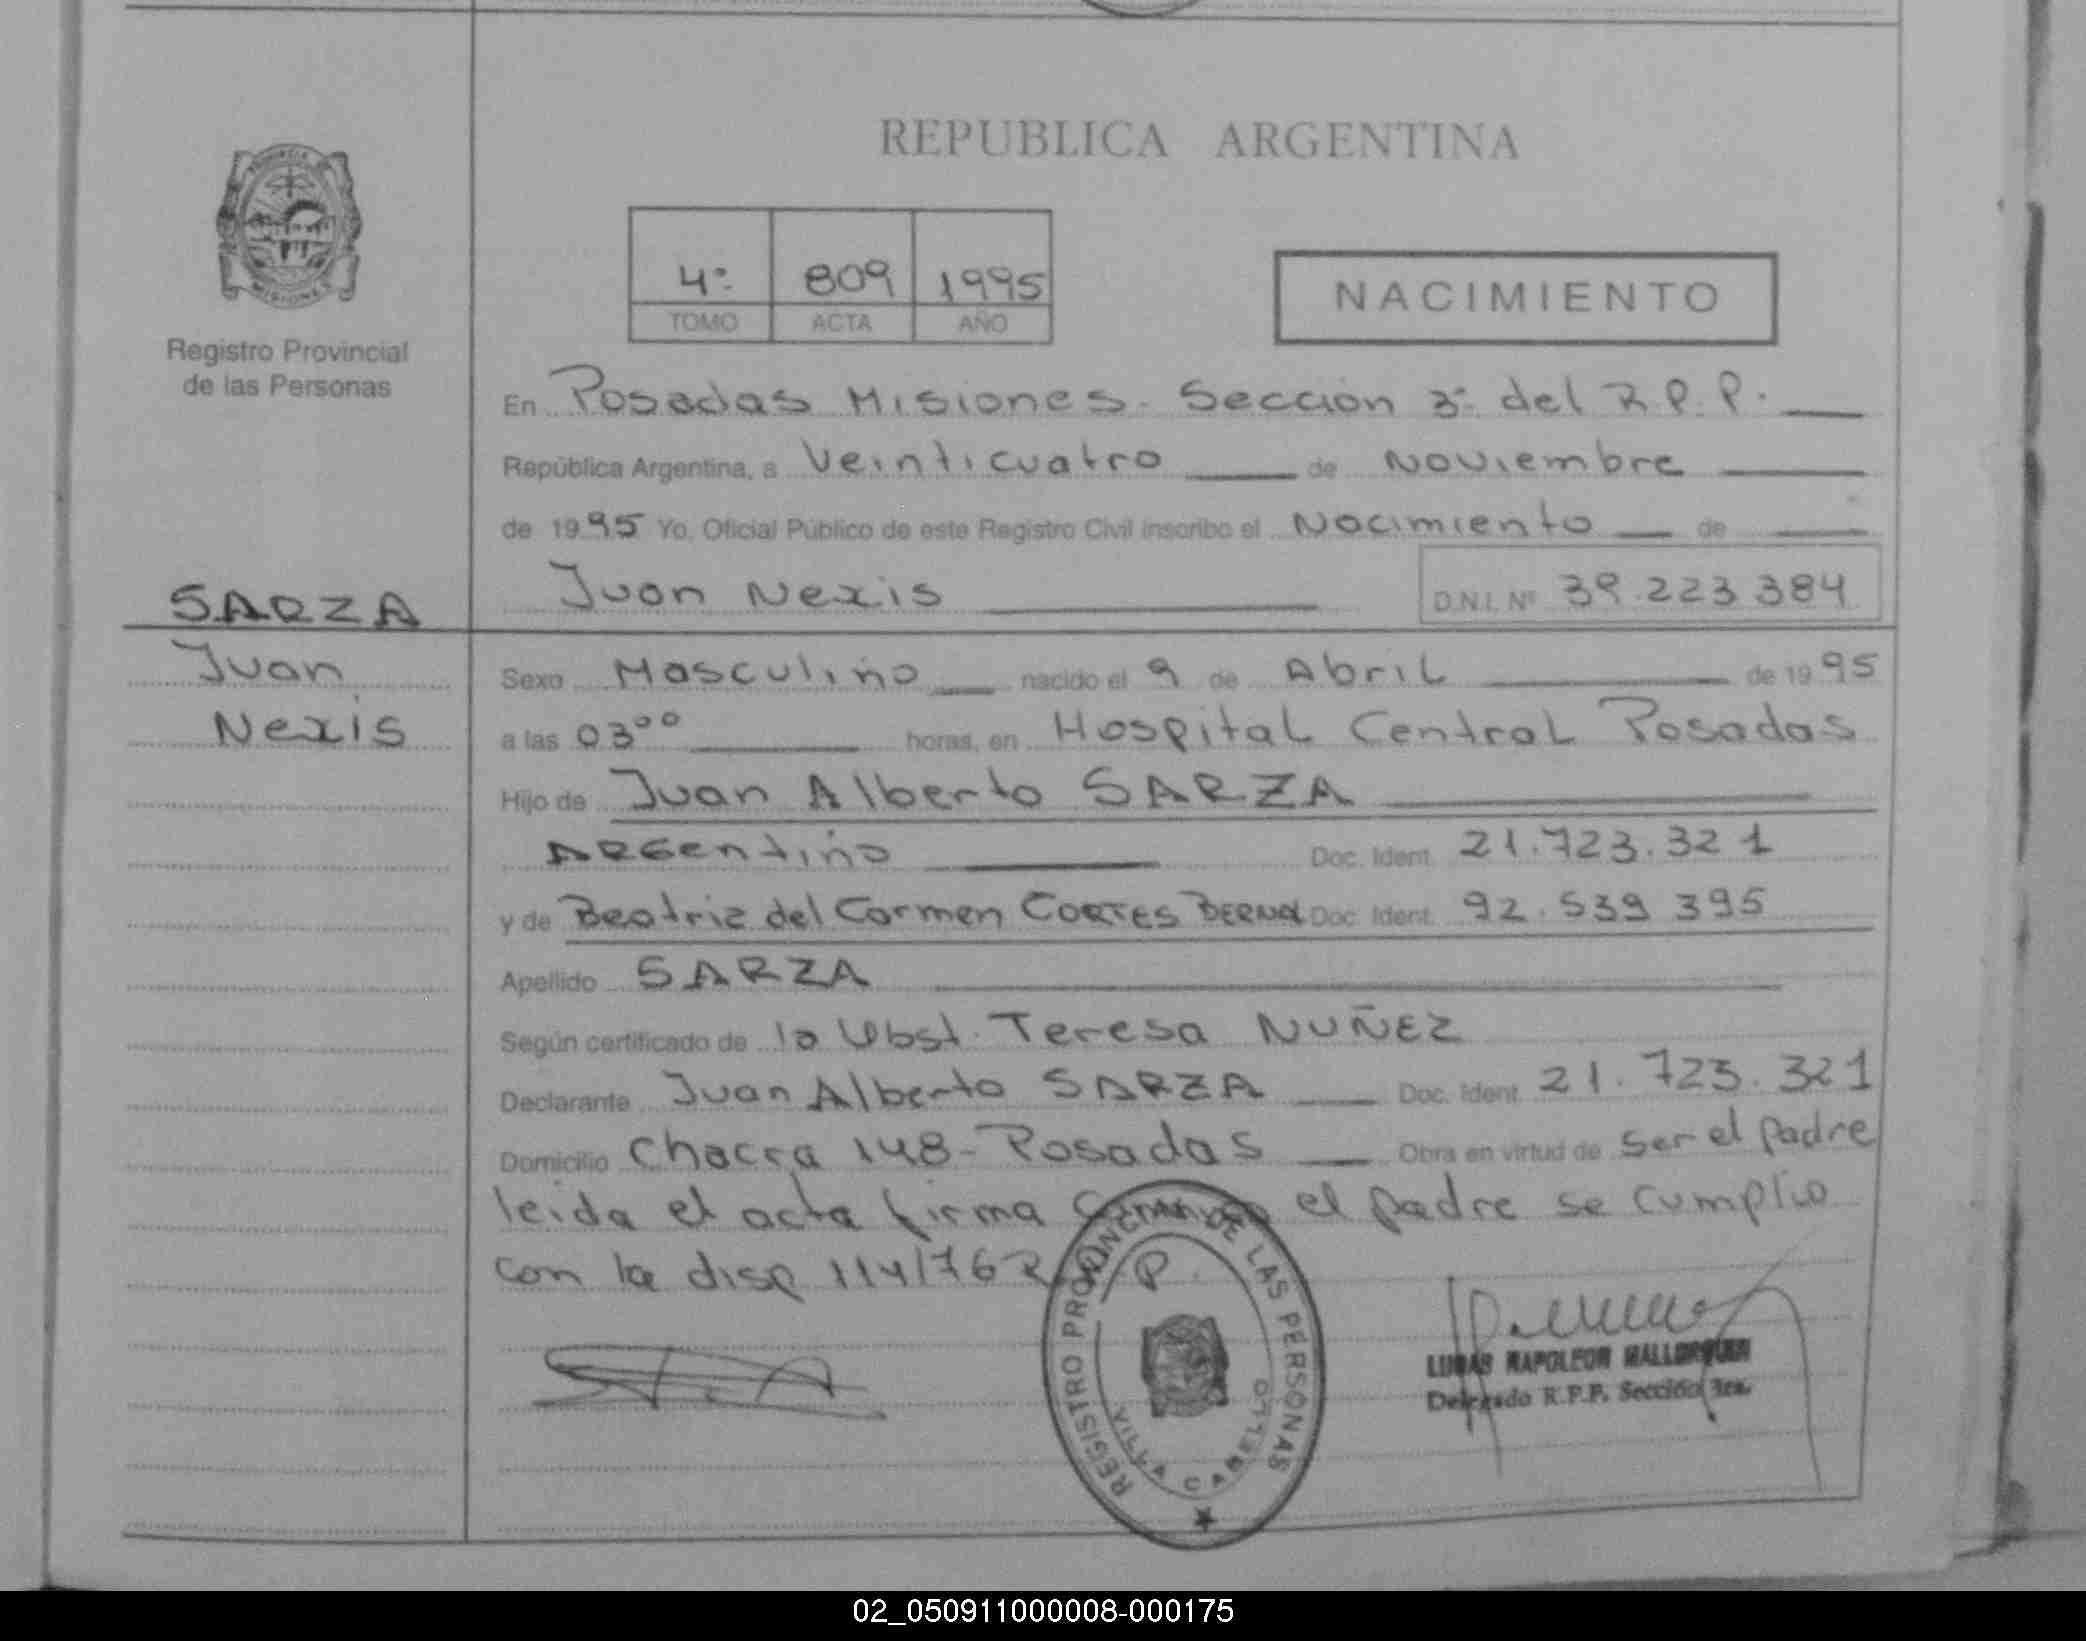 REPUBLICA ARGENTINA
PROVINCIA DE
MISIONES
Registro Provincial
de las Personas
4º 809 1995
TOMO ACTA AÑO
NACIMIENTO
En Posadas Misiones. Sección 3º del R.P.P.
República Argentina, a Veinticuatro de Noviembre
de 1995 Yo, Oficial Público de este Registro Civil inscribo el Nacimiento de
Juan Nexis D.N.I. Nº 39.223.384
SARZA
Juan
Nexis
Sexo Masculino nacido el 9 de Abril de 1995
a las 03⁰⁰ horas, en Hospital Central Posadas
Hijo de Juan Alberto SARZA
Argentino Doc. Ident. 21.723.321
y de Beatriz del Carmen CORTES BERNAL Doc. Ident. 92.539.395
Apellido SARZA
Según certificado de la Obst. Teresa NUÑEZ
Declarante Juan Alberto SARZA Doc. Ident. 21.723.321
Domicilio Chacra 148 - Posadas Obra en virtud de ser el padre
leida el acta firma el padre se cumplio
con la disp 114/76 R P.
REGISTRO PROVINCIAL DE LAS PERSONAS
VILLA CABELLO
LUCAS NAPOLEON MALLORQUIN
Delegado R.P.P. Sección 3ra.
02_050911000008-000175